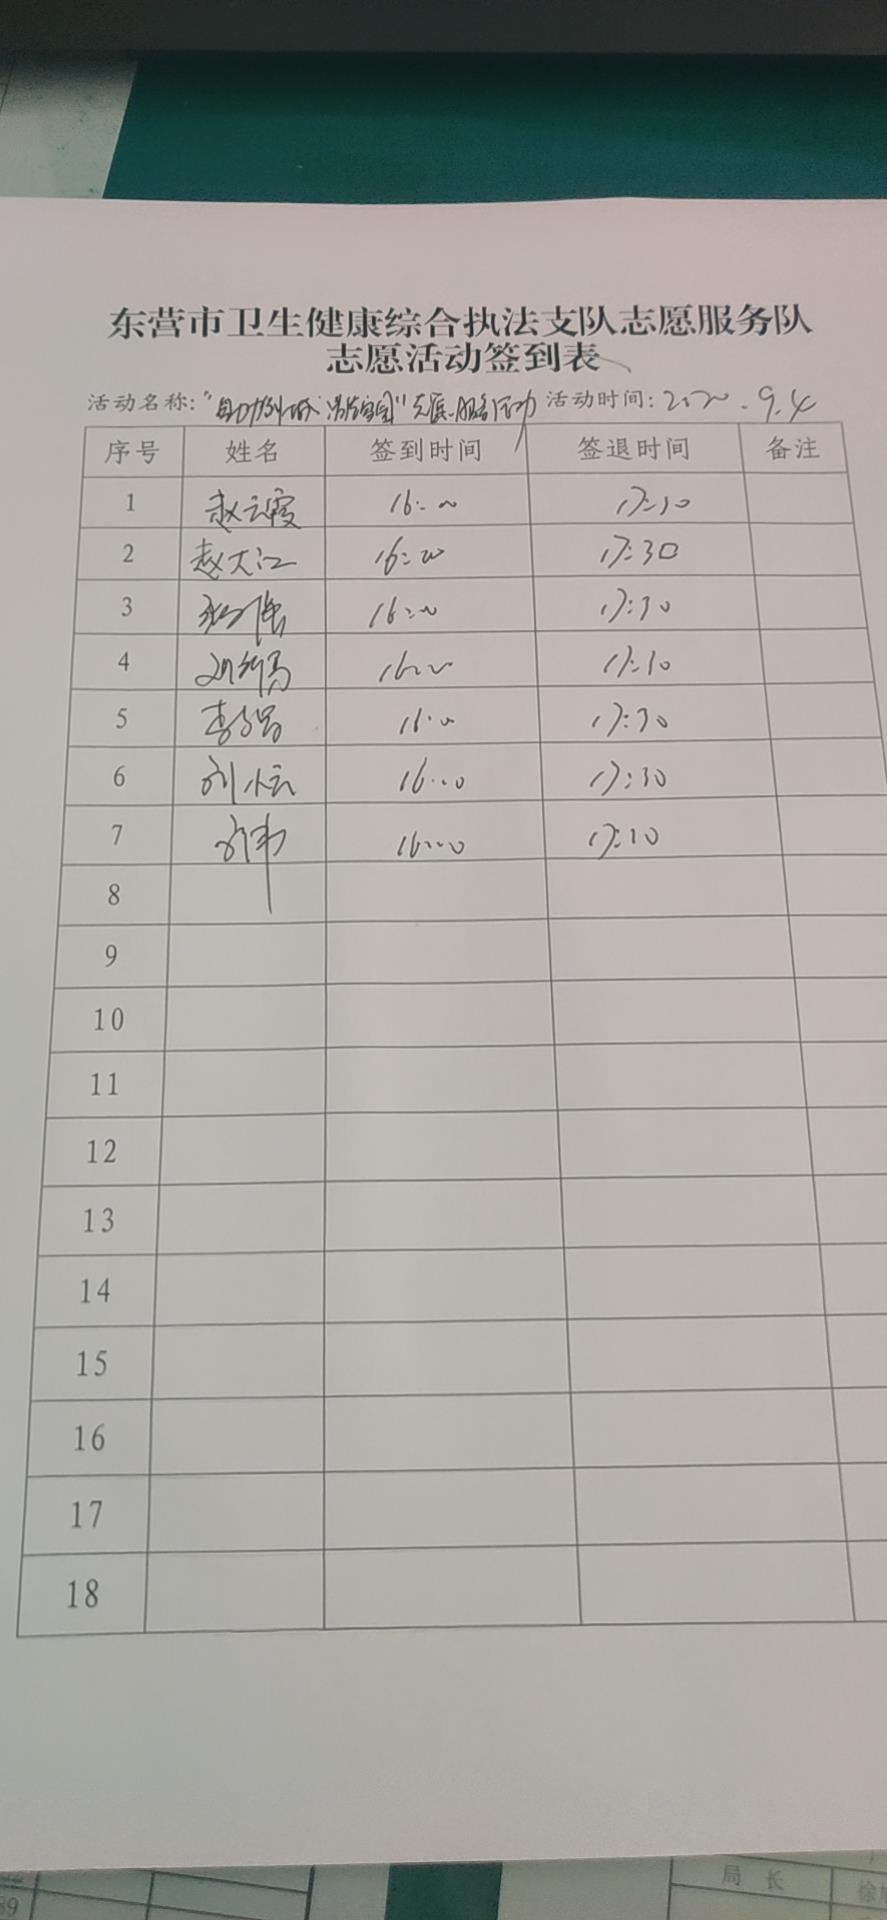 东营市卫生健康综合执法支队志愿服务队
志愿活动签到表
活动名称: 志愿服务活动 活动时间: 2020.9.4
序号 姓名 签到时间 签退时间 备注
1 赵云霞 16:00 17:30
2 赵大江 16:00 17:30
3 16:00 17:30
4 16:00 17:30
5 16:00 17:30
6 刘 16:00 17:30
7 16:00 17:30
8
9
10
11
12
13
14
15
16
17
18
89
局 长 徐